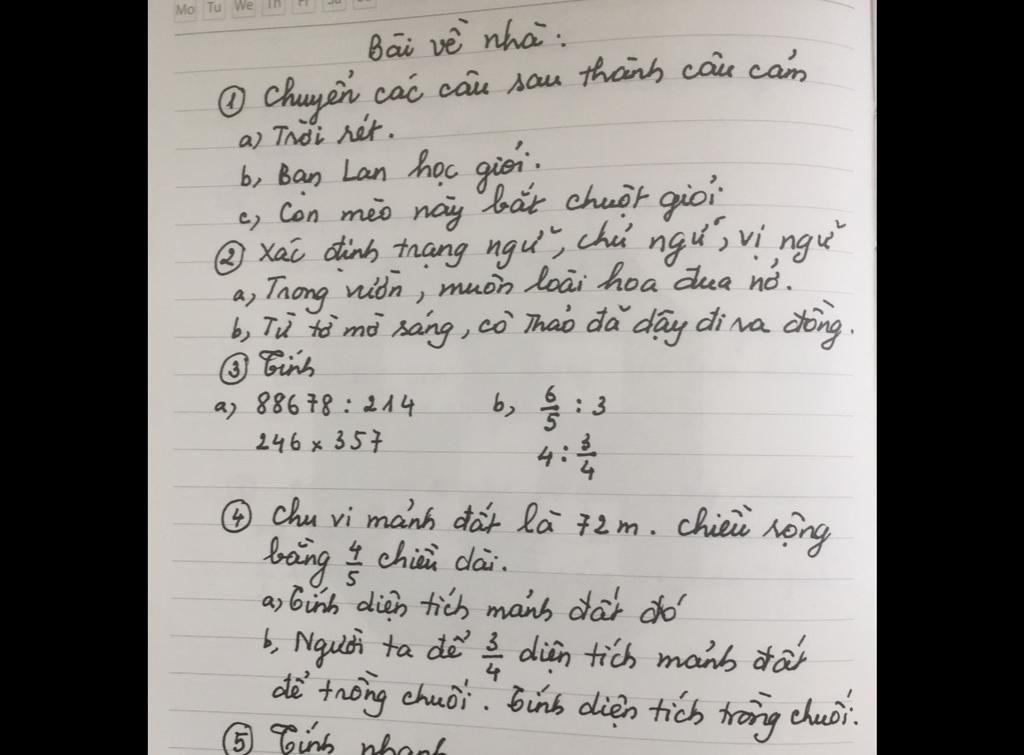 Mo Tu We Th Fr Sa
Bài về nhà:
① Chuyển các câu sau thành câu cảm
a) Trời rét.
b, Bạn Lan học giỏi.
c, Con mèo này bắt chuột giỏi
② Xác định trạng ngữ, chủ ngữ, vị ngữ
a, Trong vườn, muôn loài hoa đua nở.
b, Từ tờ mờ sáng, cô Thảo đã dậy đi ra đồng.
③ Tính
a, 88678 : 214 b, 6/5 : 3
246 x 357 4 : 3/4
④ Chu vi mảnh đất là 72m. Chiều rộng
bằng 4/5 chiều dài.
a, Tính diện tích mảnh đất đó
b, Người ta để 3/4 diện tích mảnh đất
để trồng chuối. Tính diện tích trồng chuối.
⑤ Tính nhanh